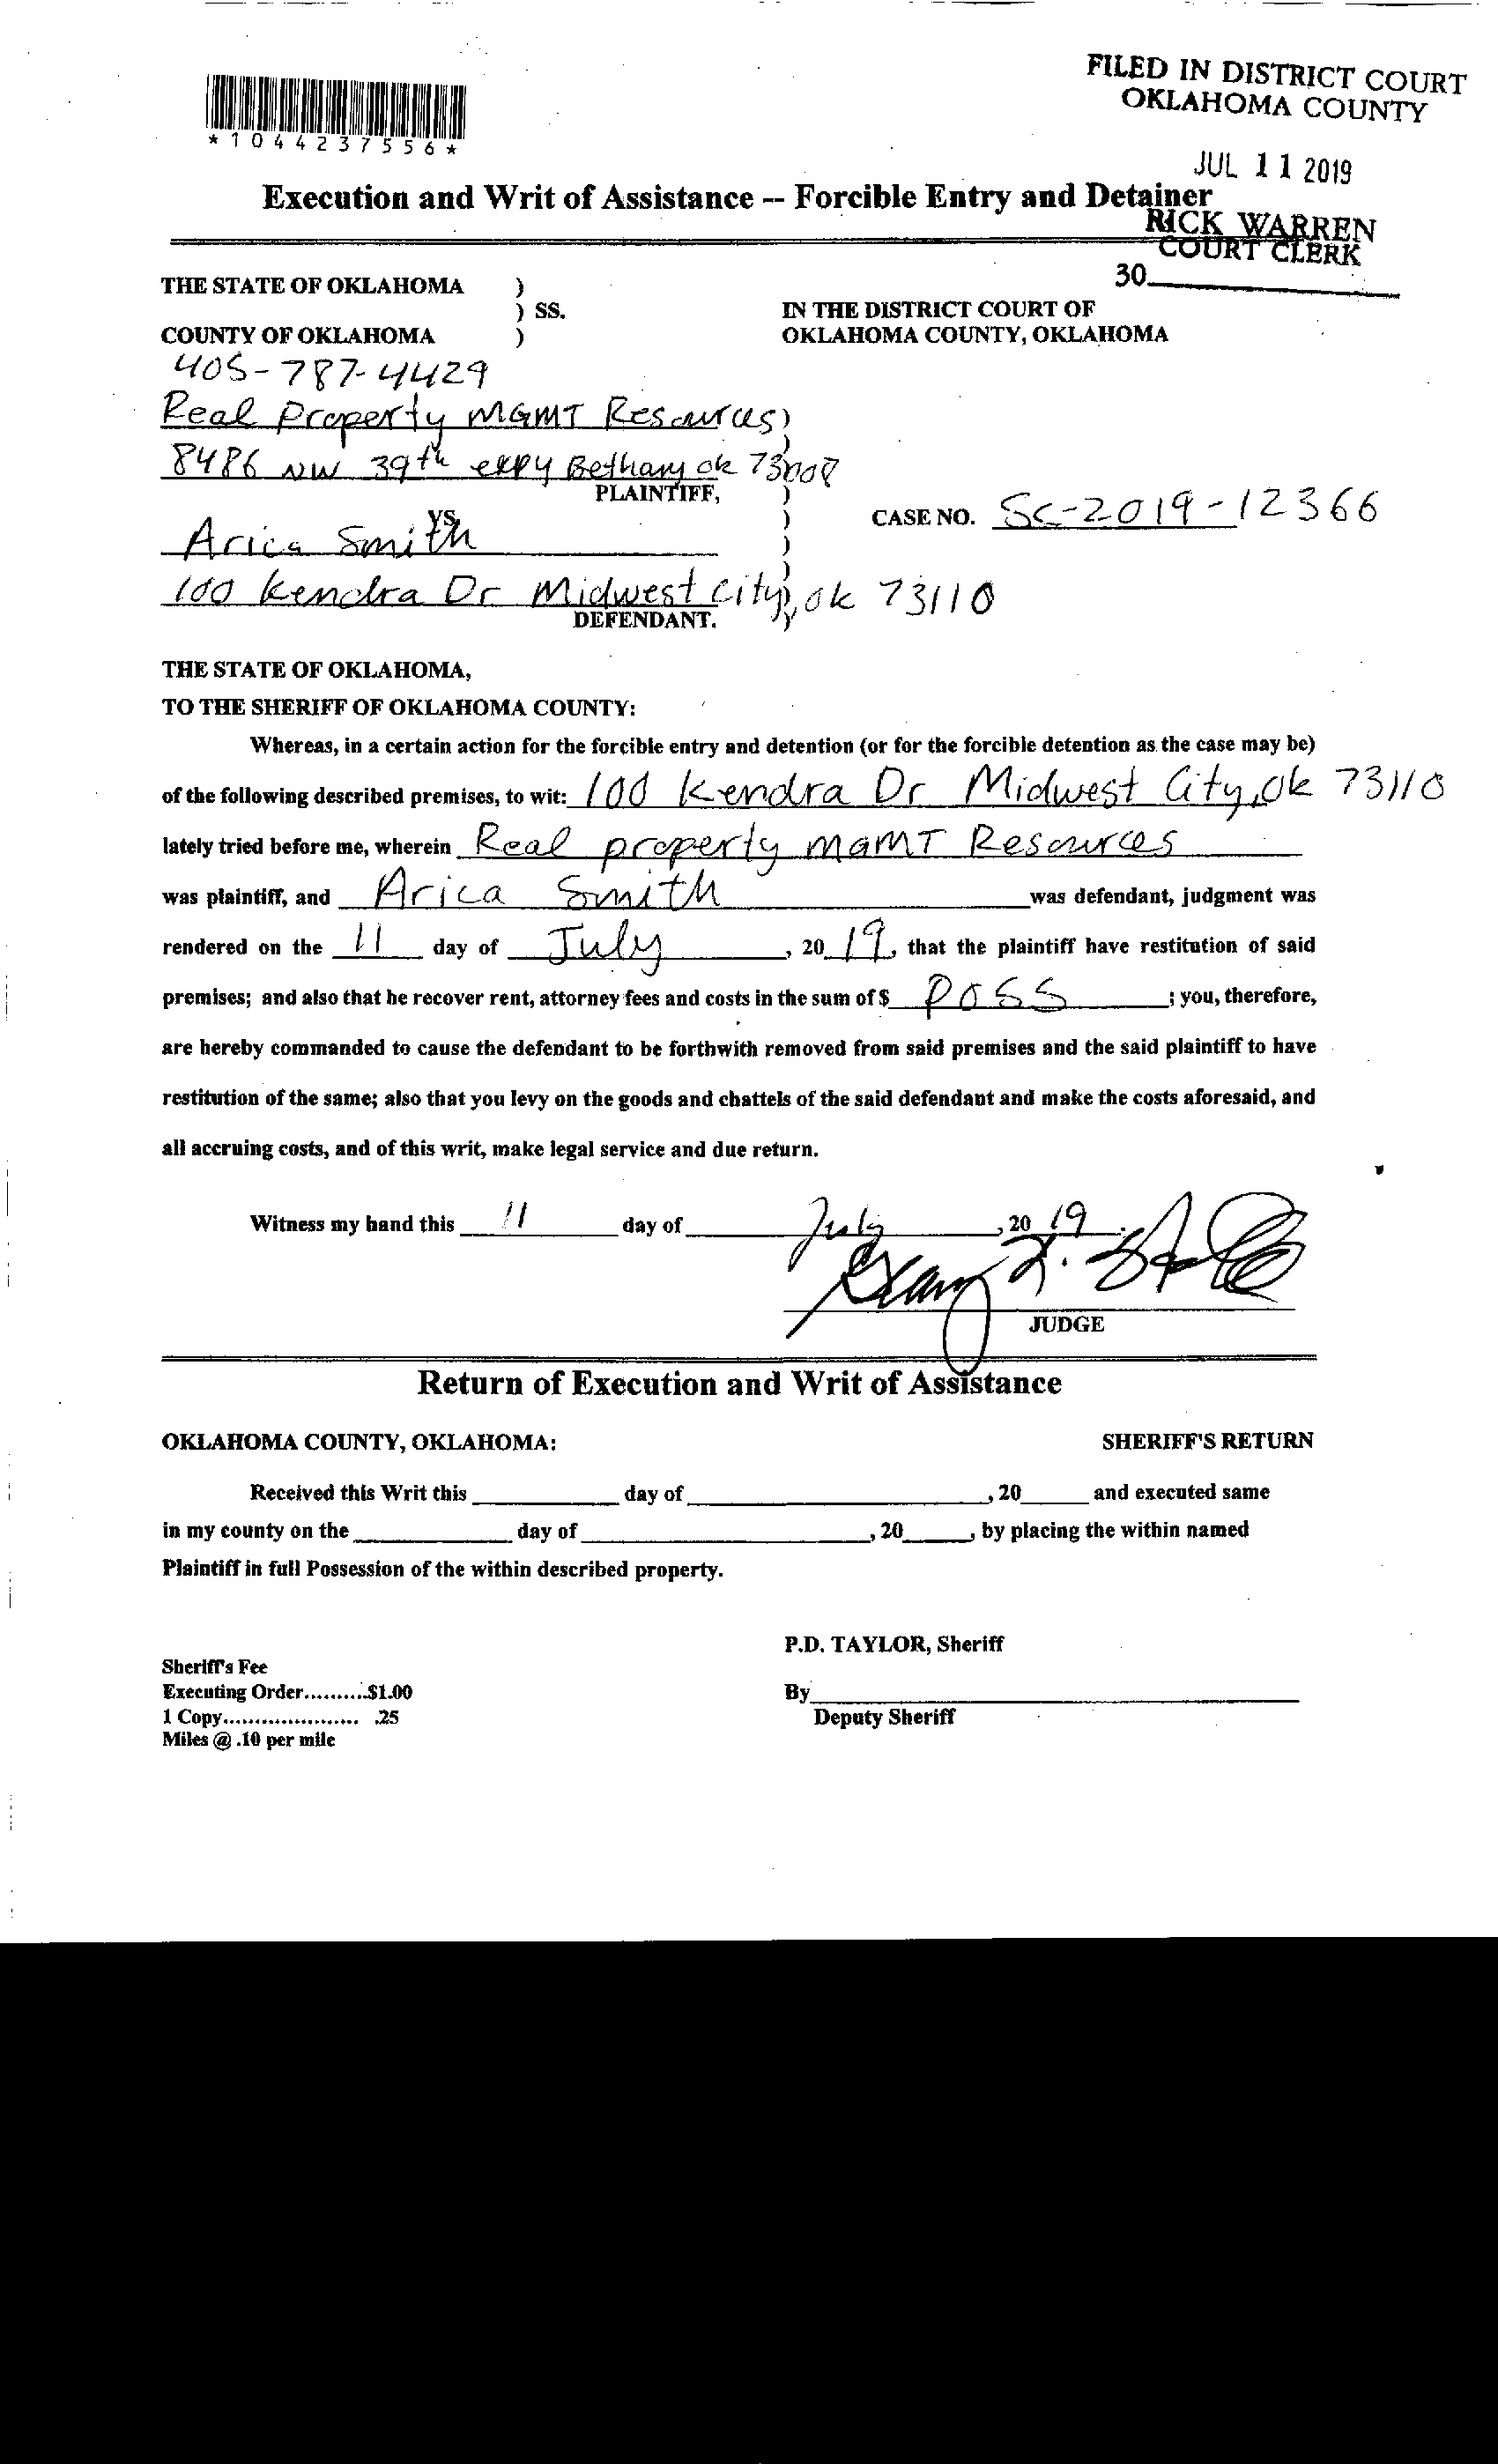 FILED IN DISTRICT COURT
OKLAHOMA COUNTY
*1044237556*
JUL 11 2019
Execution and Writ of Assistance -- Forcible Entry and Detainer
RICK WARREN
COURT CLERK
30
THE STATE OF OKLAHOMA )
) SS.
COUNTY OF OKLAHOMA )
IN THE DISTRICT COURT OF
OKLAHOMA COUNTY, OKLAHOMA
405-787-4429
Real Property MGMT Resources )
8486 NW 39th expy Bethany ok 73008 )
PLAINTIFF, )
vs. )
CASE NO. SC-2019-12366
Arica Smith )
100 Kendra Dr Midwest City, ok 73110 )
DEFENDANT. )
THE STATE OF OKLAHOMA,
TO THE SHERIFF OF OKLAHOMA COUNTY:
Whereas, in a certain action for the forcible entry and detention (or for the forcible detention as the case may be)
of the following described premises, to wit: 100 Kendra Dr Midwest City, Ok 73110
lately tried before me, wherein Real property MGMT Resources
was plaintiff, and Arica Smith was defendant, judgment was
rendered on the 11 day of July, 20 19, that the plaintiff have restitution of said
premises; and also that he recover rent, attorney fees and costs in the sum of $ POSS ; you, therefore,
are hereby commanded to cause the defendant to be forthwith removed from said premises and the said plaintiff to have
restitution of the same; also that you levy on the goods and chattels of the said defendant and make the costs aforesaid, and
all accruing costs, and of this writ, make legal service and due return.
Witness my hand this 11 day of July, 20 19.
JUDGE
Return of Execution and Writ of Assistance
OKLAHOMA COUNTY, OKLAHOMA: SHERIFF'S RETURN
Received this Writ this day of , 20 and executed same
in my county on the day of , 20 , by placing the within named
Plaintiff in full Possession of the within described property.
P.D. TAYLOR, Sheriff
Sheriff's Fee
Executing Order..........$1.00
1 Copy..................... .25
Miles @ .10 per mile
By
Deputy Sheriff